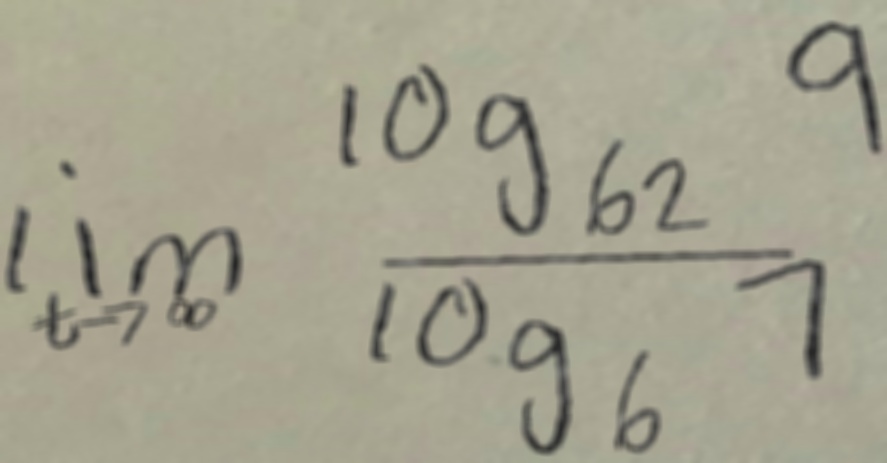 lim t→∞ log_{62} 9 / log_6 7